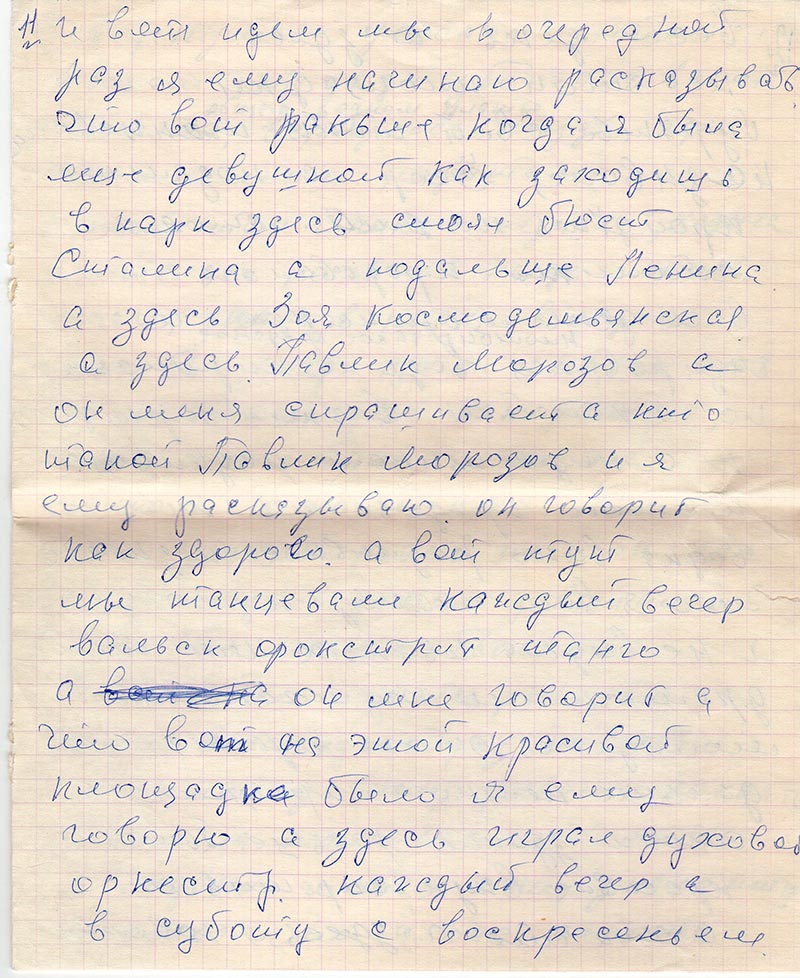 11 и вот идем мы в очередной
раз я ему начинаю расказывать
что вот раньше когда я была
еще девушкой как заходишь
в парк здесь стоял бюст
Сталина а подальше Ленина
а здесь Зоя Космодемьянская
а здесь Павлик Морозов а
он меня спрашивает а кто
такой Павлик Морозов и я
ему расказываю он говорит
как здорово. а вот тут
мы танцевали каждый вечер
вальск фокстрит танго
а он мне говорит а
что вот на этой красивой
площадке было я ему
говорю а здесь играл духовой
оркестр каждый вечер а
в суботу с воскресеньем